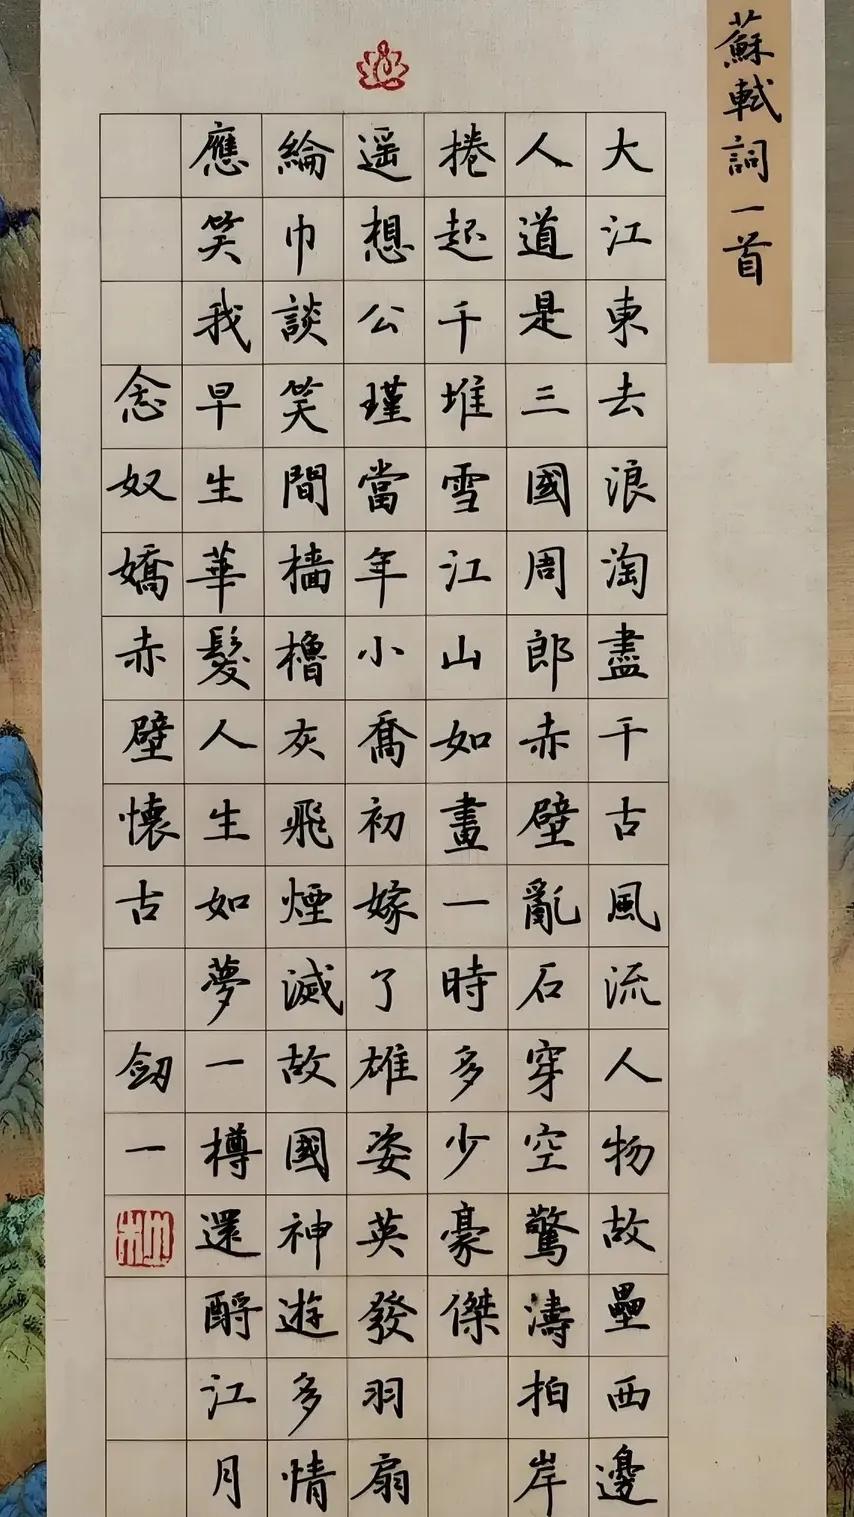 蘇軾詞一首
大江東去浪淘盡千古風流人物故壘西邊
人道是三國周郎赤壁亂石穿空驚濤拍岸
捲起千堆雪江山如畫一時多少豪傑
遥想公瑾當年小喬初嫁了雄姿英發羽扇
綸巾談笑間檣櫓灰飛煙滅故國神遊多情
應笑我早生華髮人生如夢一樽還酹江月
念奴嬌赤壁懷古 一